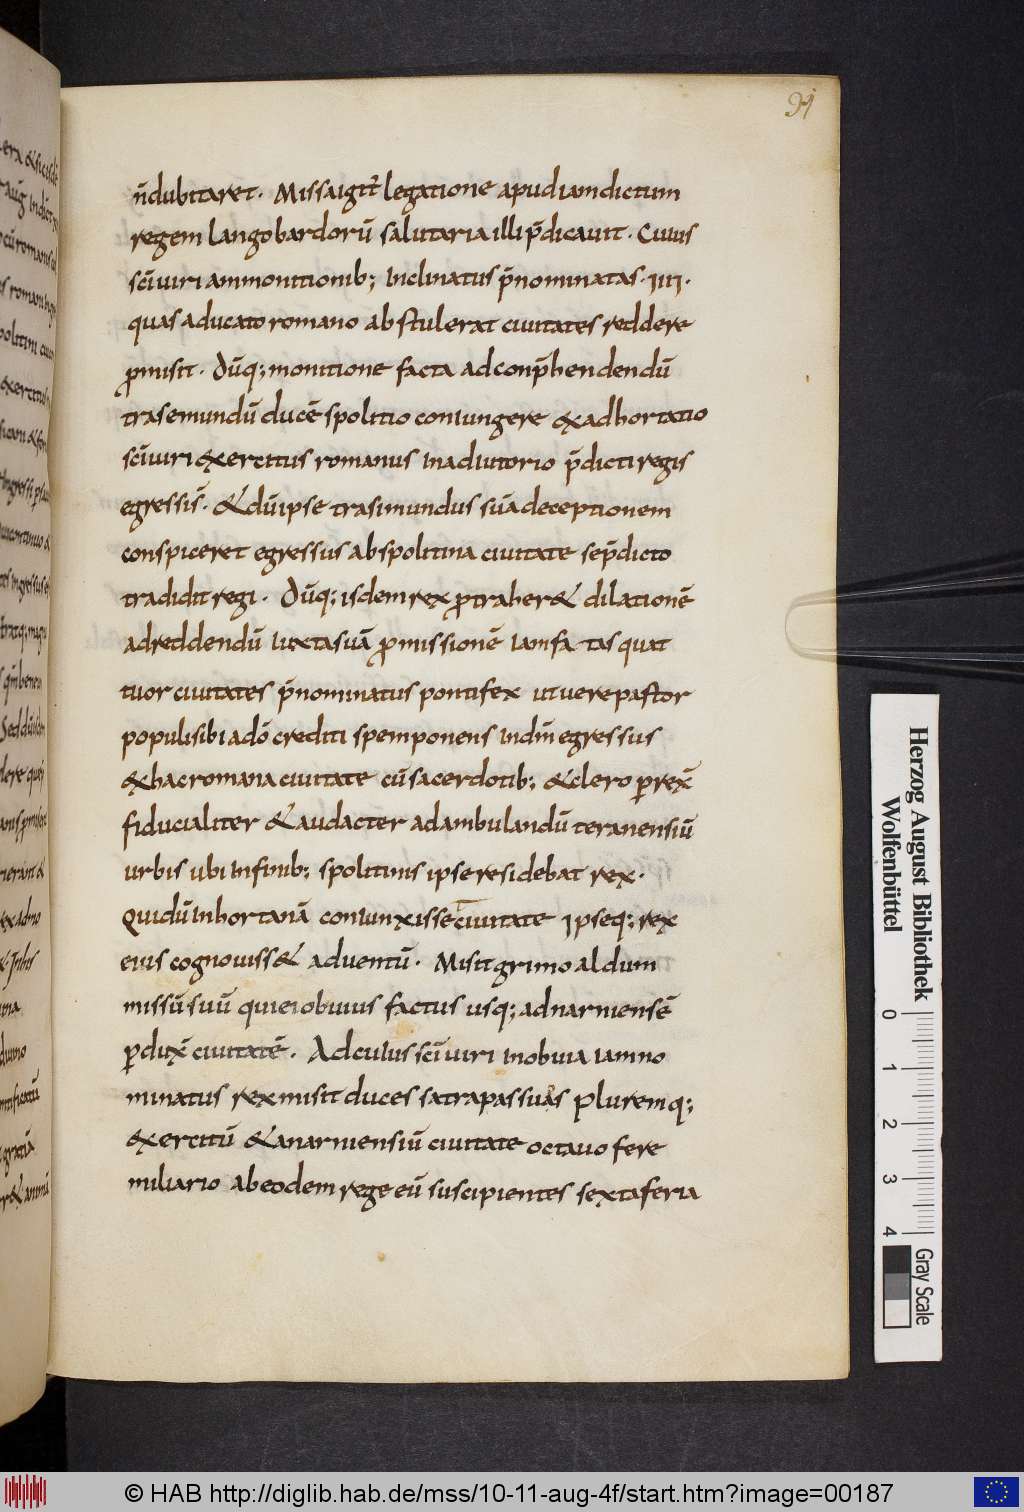 91
n̄dubitaret. Missaigit̄ legatione apud iamdictum
regem langobardorū salutaria illi p̄dicauit. Cuius
sc̄i uiri ammonitionib; inclinatus p̄nominatas .IIII.
quas aducato romano abstulerat ciuitates reddere
promisit. Dūq; monitione facta adconp̄hendendū
trasemundū ducē spolitio coniungere & adhortatio
sc̄i uiri exercitus romanus inadiutorio p̄dicti regis
egressus̄. & dū ipse trasimundus suā deceptionem
conspiceret egressus abspolitina ciuitate se p̄dicto
tradidit regi. Dūq; isdem rex protraher& dilationē
adreddendū iuxta suā promissionē iamfa tas quat
tuor ciuitates p̄nominatus pontifex ut uere pastor
populi sibi adō crediti spem ponens in dn̄m egressus
ex hac romana ciuitate cū sacerdotib; & clero perrex̄
fiducialiter & audacter ad ambulandū teranensiū
urbis ubi infinib; spolitinis ipse residebat rex.
Qui dū in hortanā coniunxisse ciuitate ipseq; rex
eius cognouiss& aduentū. Misit grimoaldum
missū suū qui ei obuius factus usq; adnarniensē
perdux̄ ciuitatē. Ad cuius sc̄i uiri inobuia iamno
minatus rex misit duces satrapas suas pluremq;
exercitū & anarniensiū ciuitate octauo fere
miliario ab eodem rege eū suscipientes sexta feria
Herzog August Bibliothek
Wolfenbüttel
0 1 2 3 4
Gray Scale
© HAB http://diglib.hab.de/mss/10-11-aug-4f/start.htm?image=00187